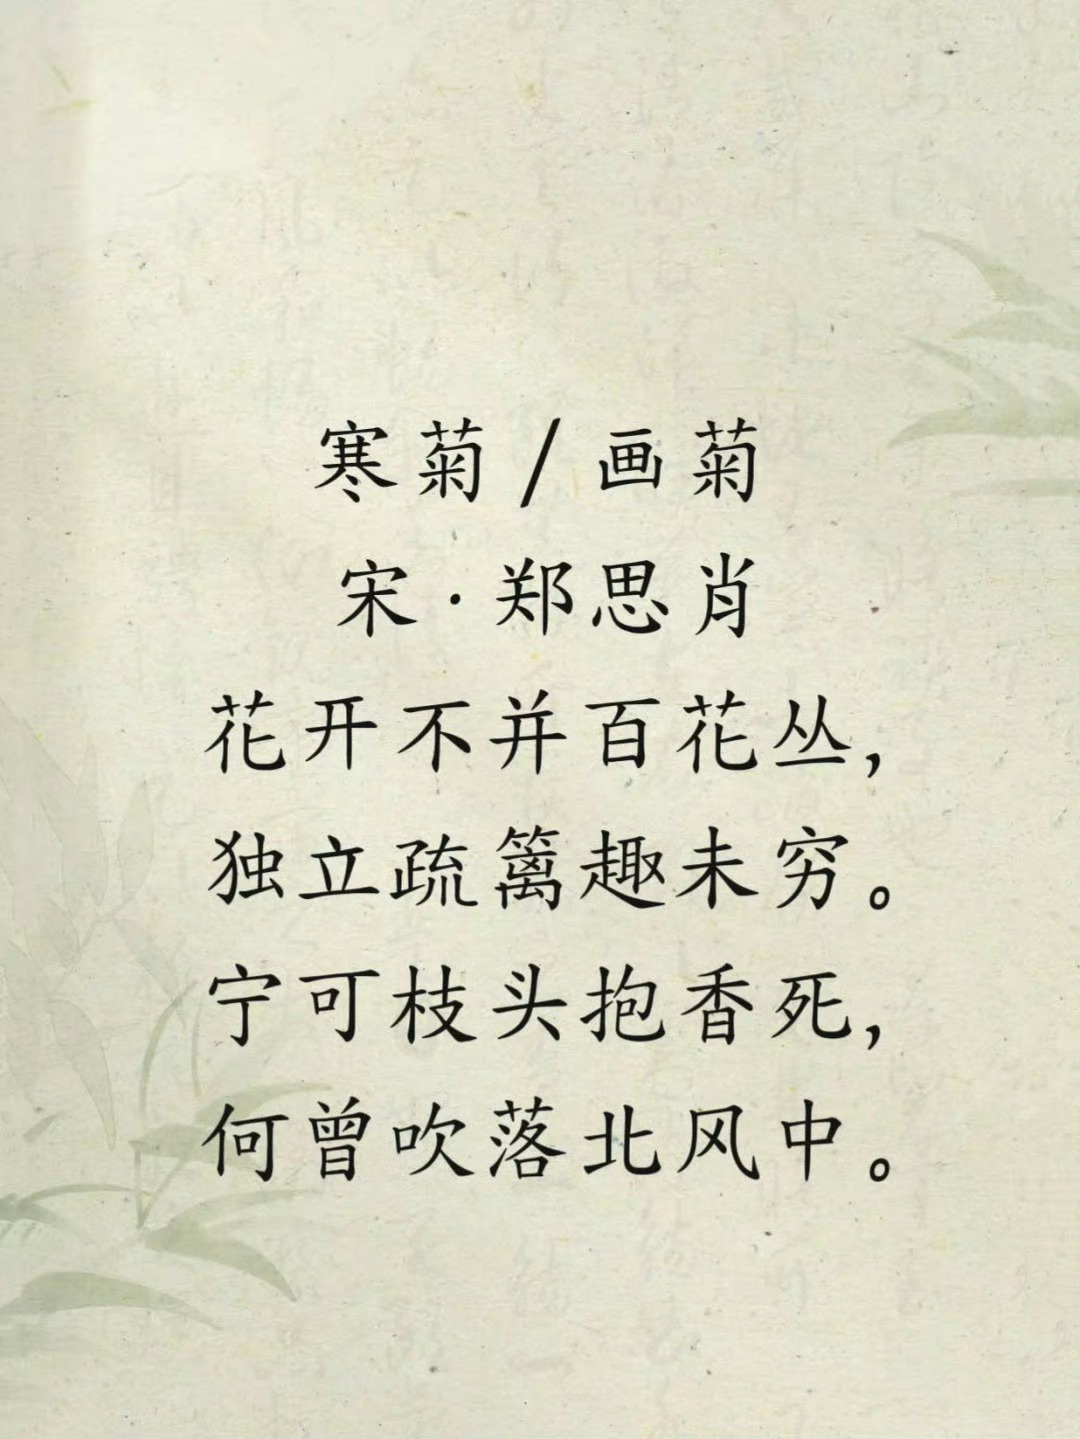 寒菊/画菊
宋·郑思肖
花开不并百花丛，
独立疏篱趣未穷。
宁可枝头抱香死，
何曾吹落北风中。